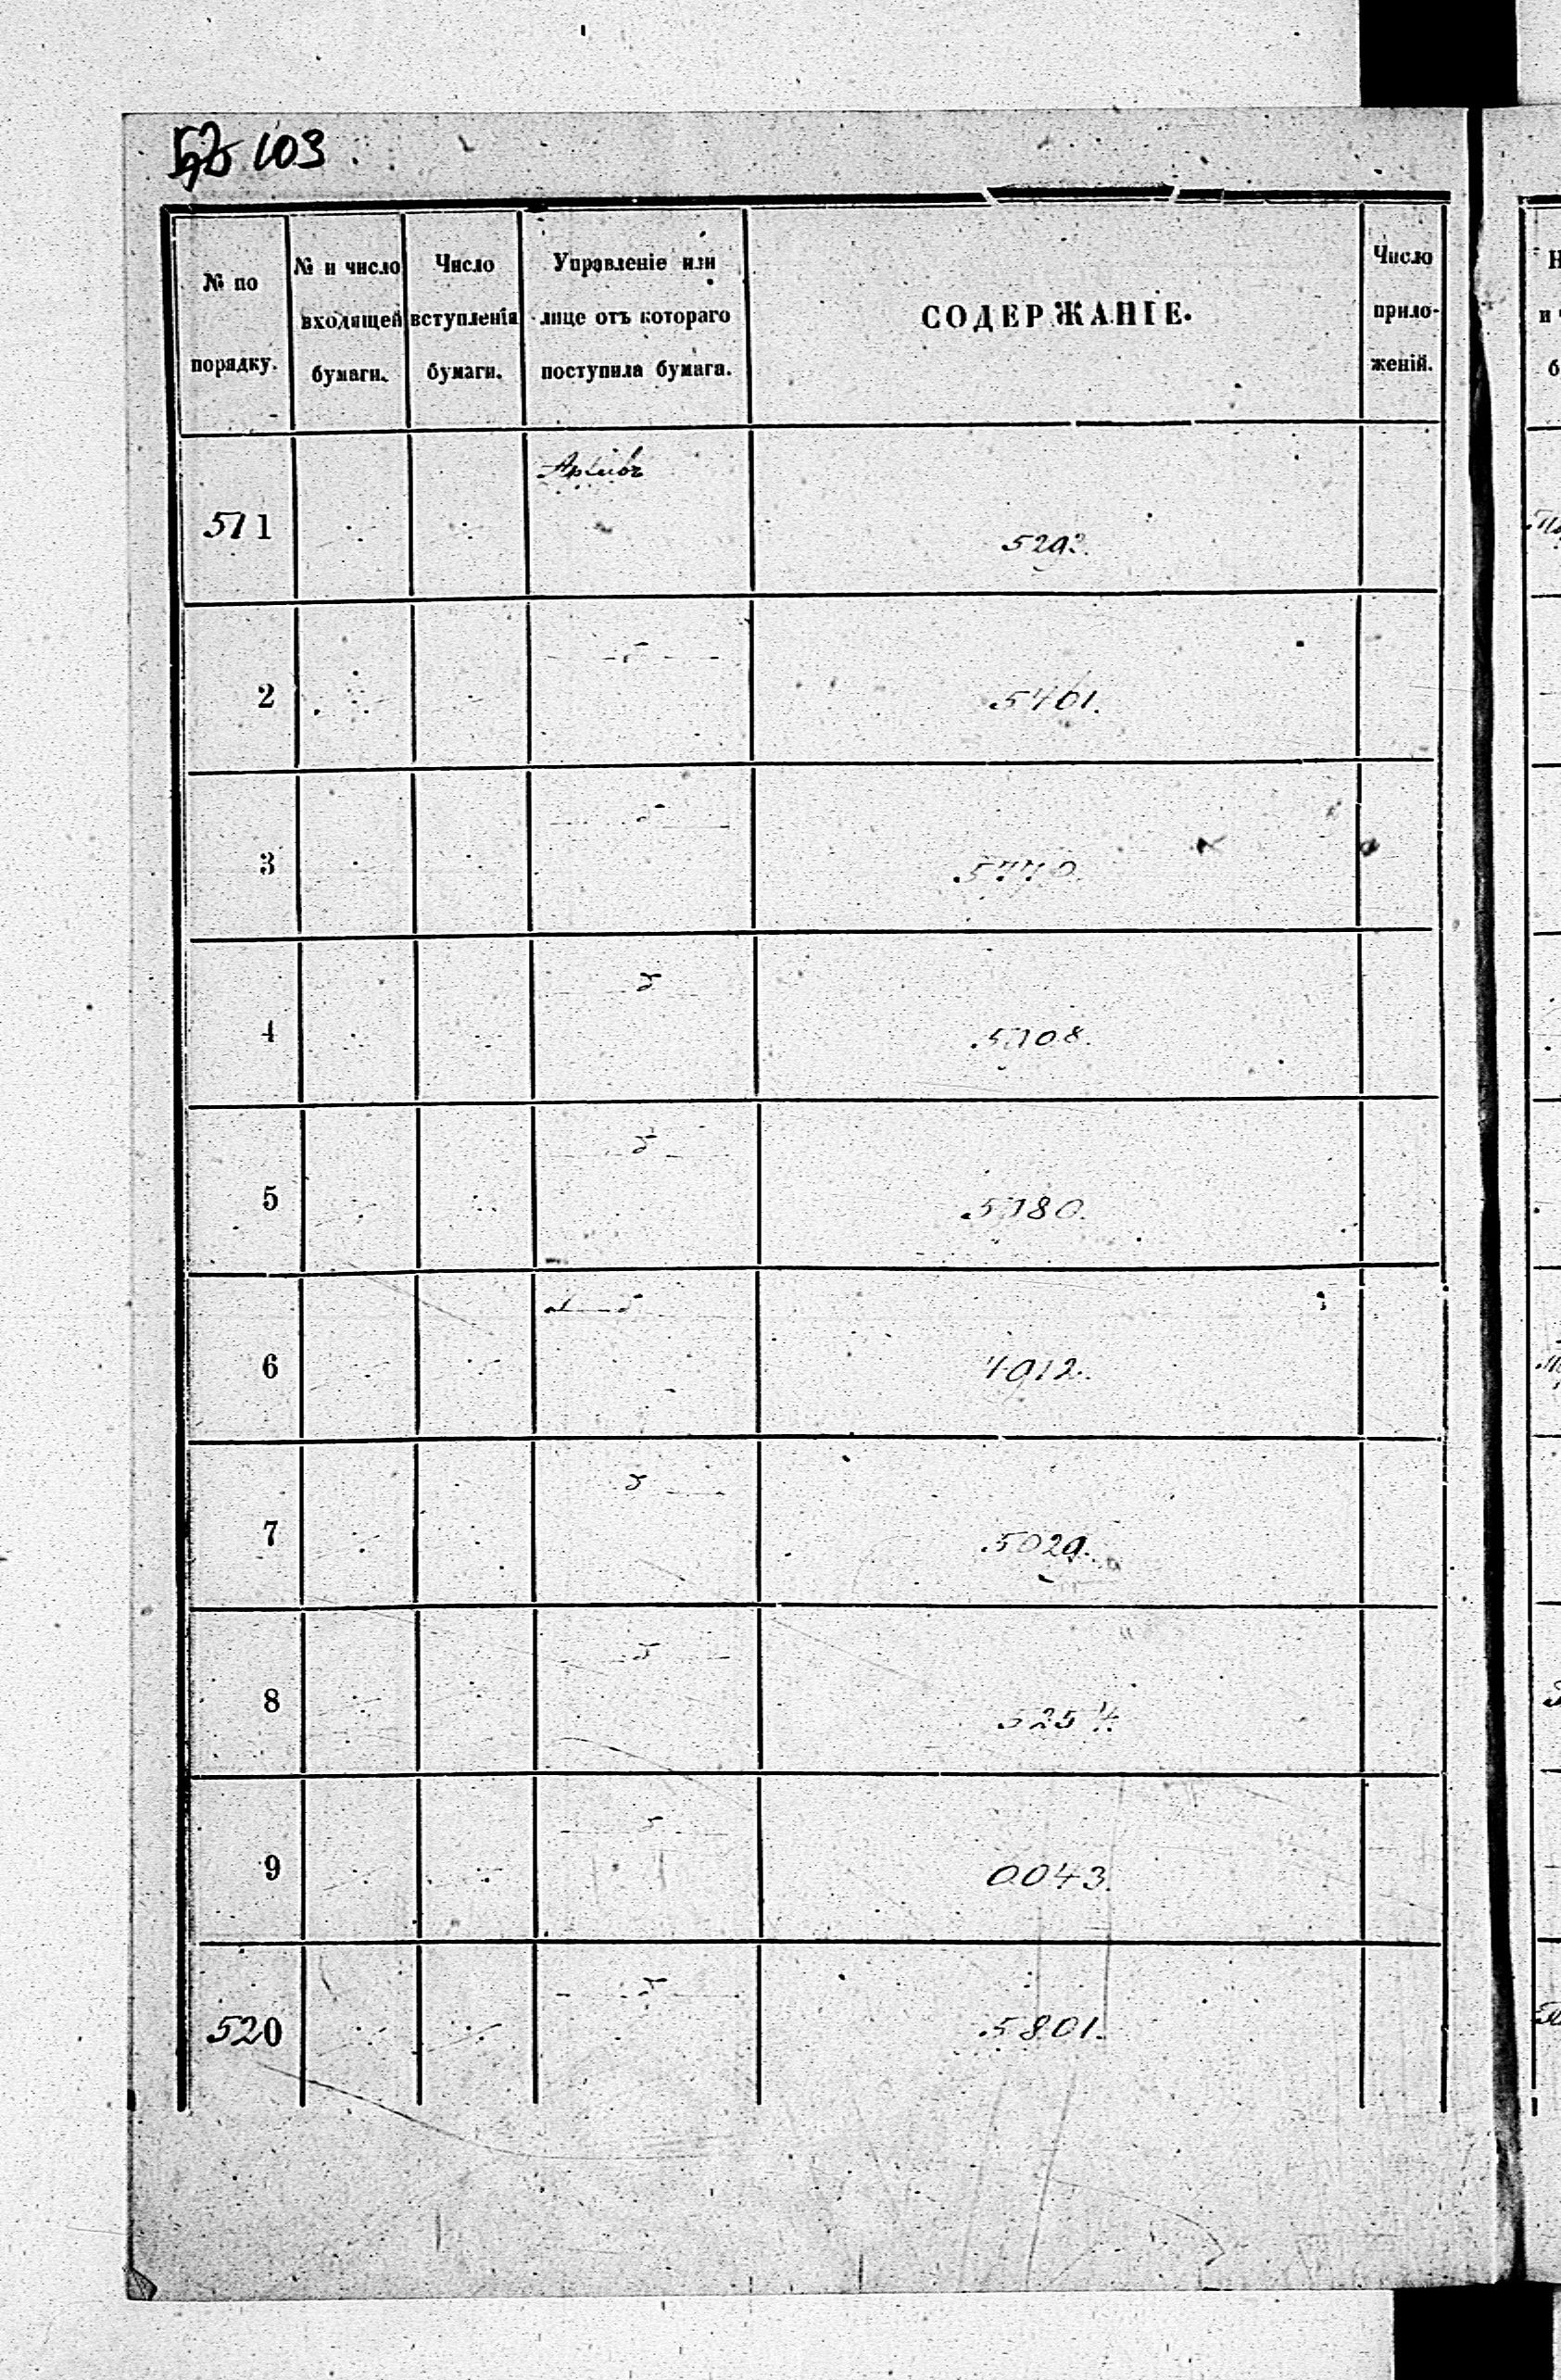 103
№ по порядку.
№ и число входящей бумаги.
Число вступленія бумаги.
Управленіе или лице отъ котораго поступила бумага.
СОДЕРЖАНІЕ.
Число приложеній.
511 Архивъ 5293.
2 5461.
3
4 5708.
5 5780.
6 4912.
7 5029.
8 5254.
9 0043.
520 5801.